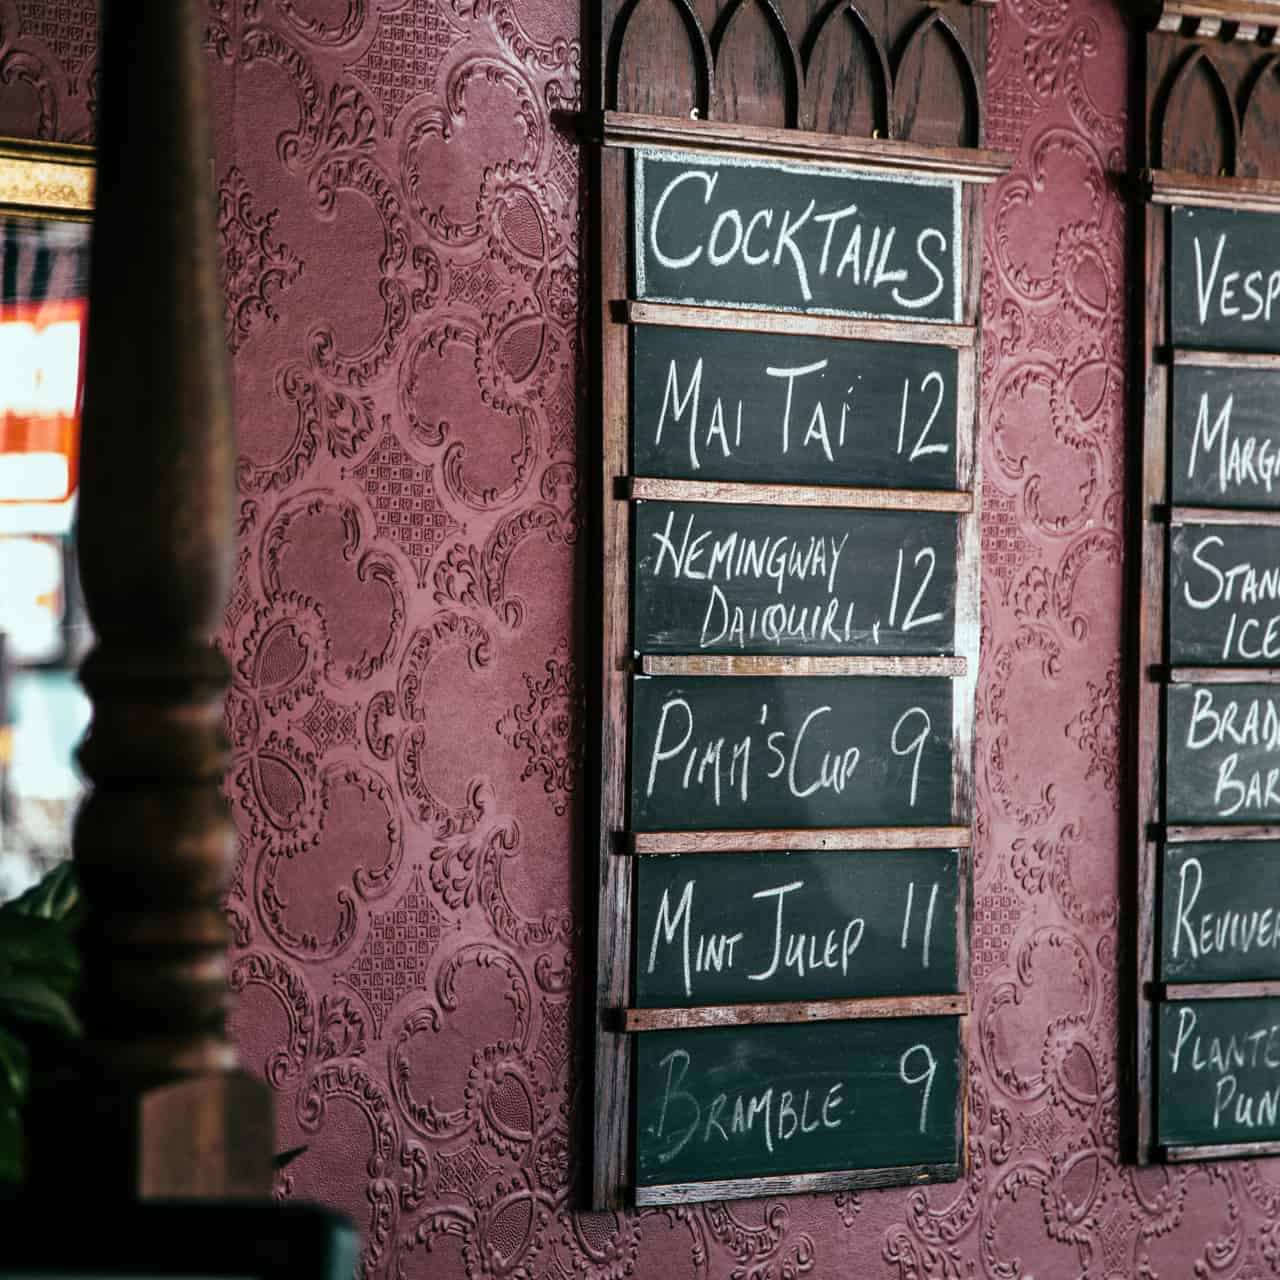 COCKTAILS
MAI TAI 12
HEMINGWAY
DAIQUIRI 12
PIMM'S CUP 9
MINT JULEP 11
BRAMBLE 9
VESP
MARG
STAN
ICE
BRAD
BAR
REVIVE
PLANTE
PUN